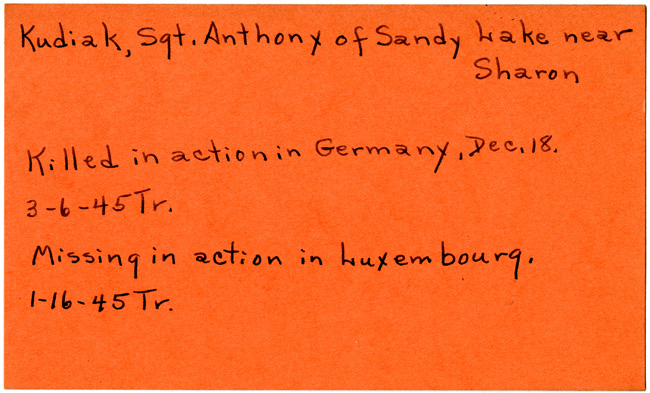 Kudiak, Sgt. Anthony of Sandy Lake near
Sharon
Killed in action in Germany, Dec. 18.
3-6-45 Tr.
Missing in action in Luxembourg.
1-16-45 Tr.